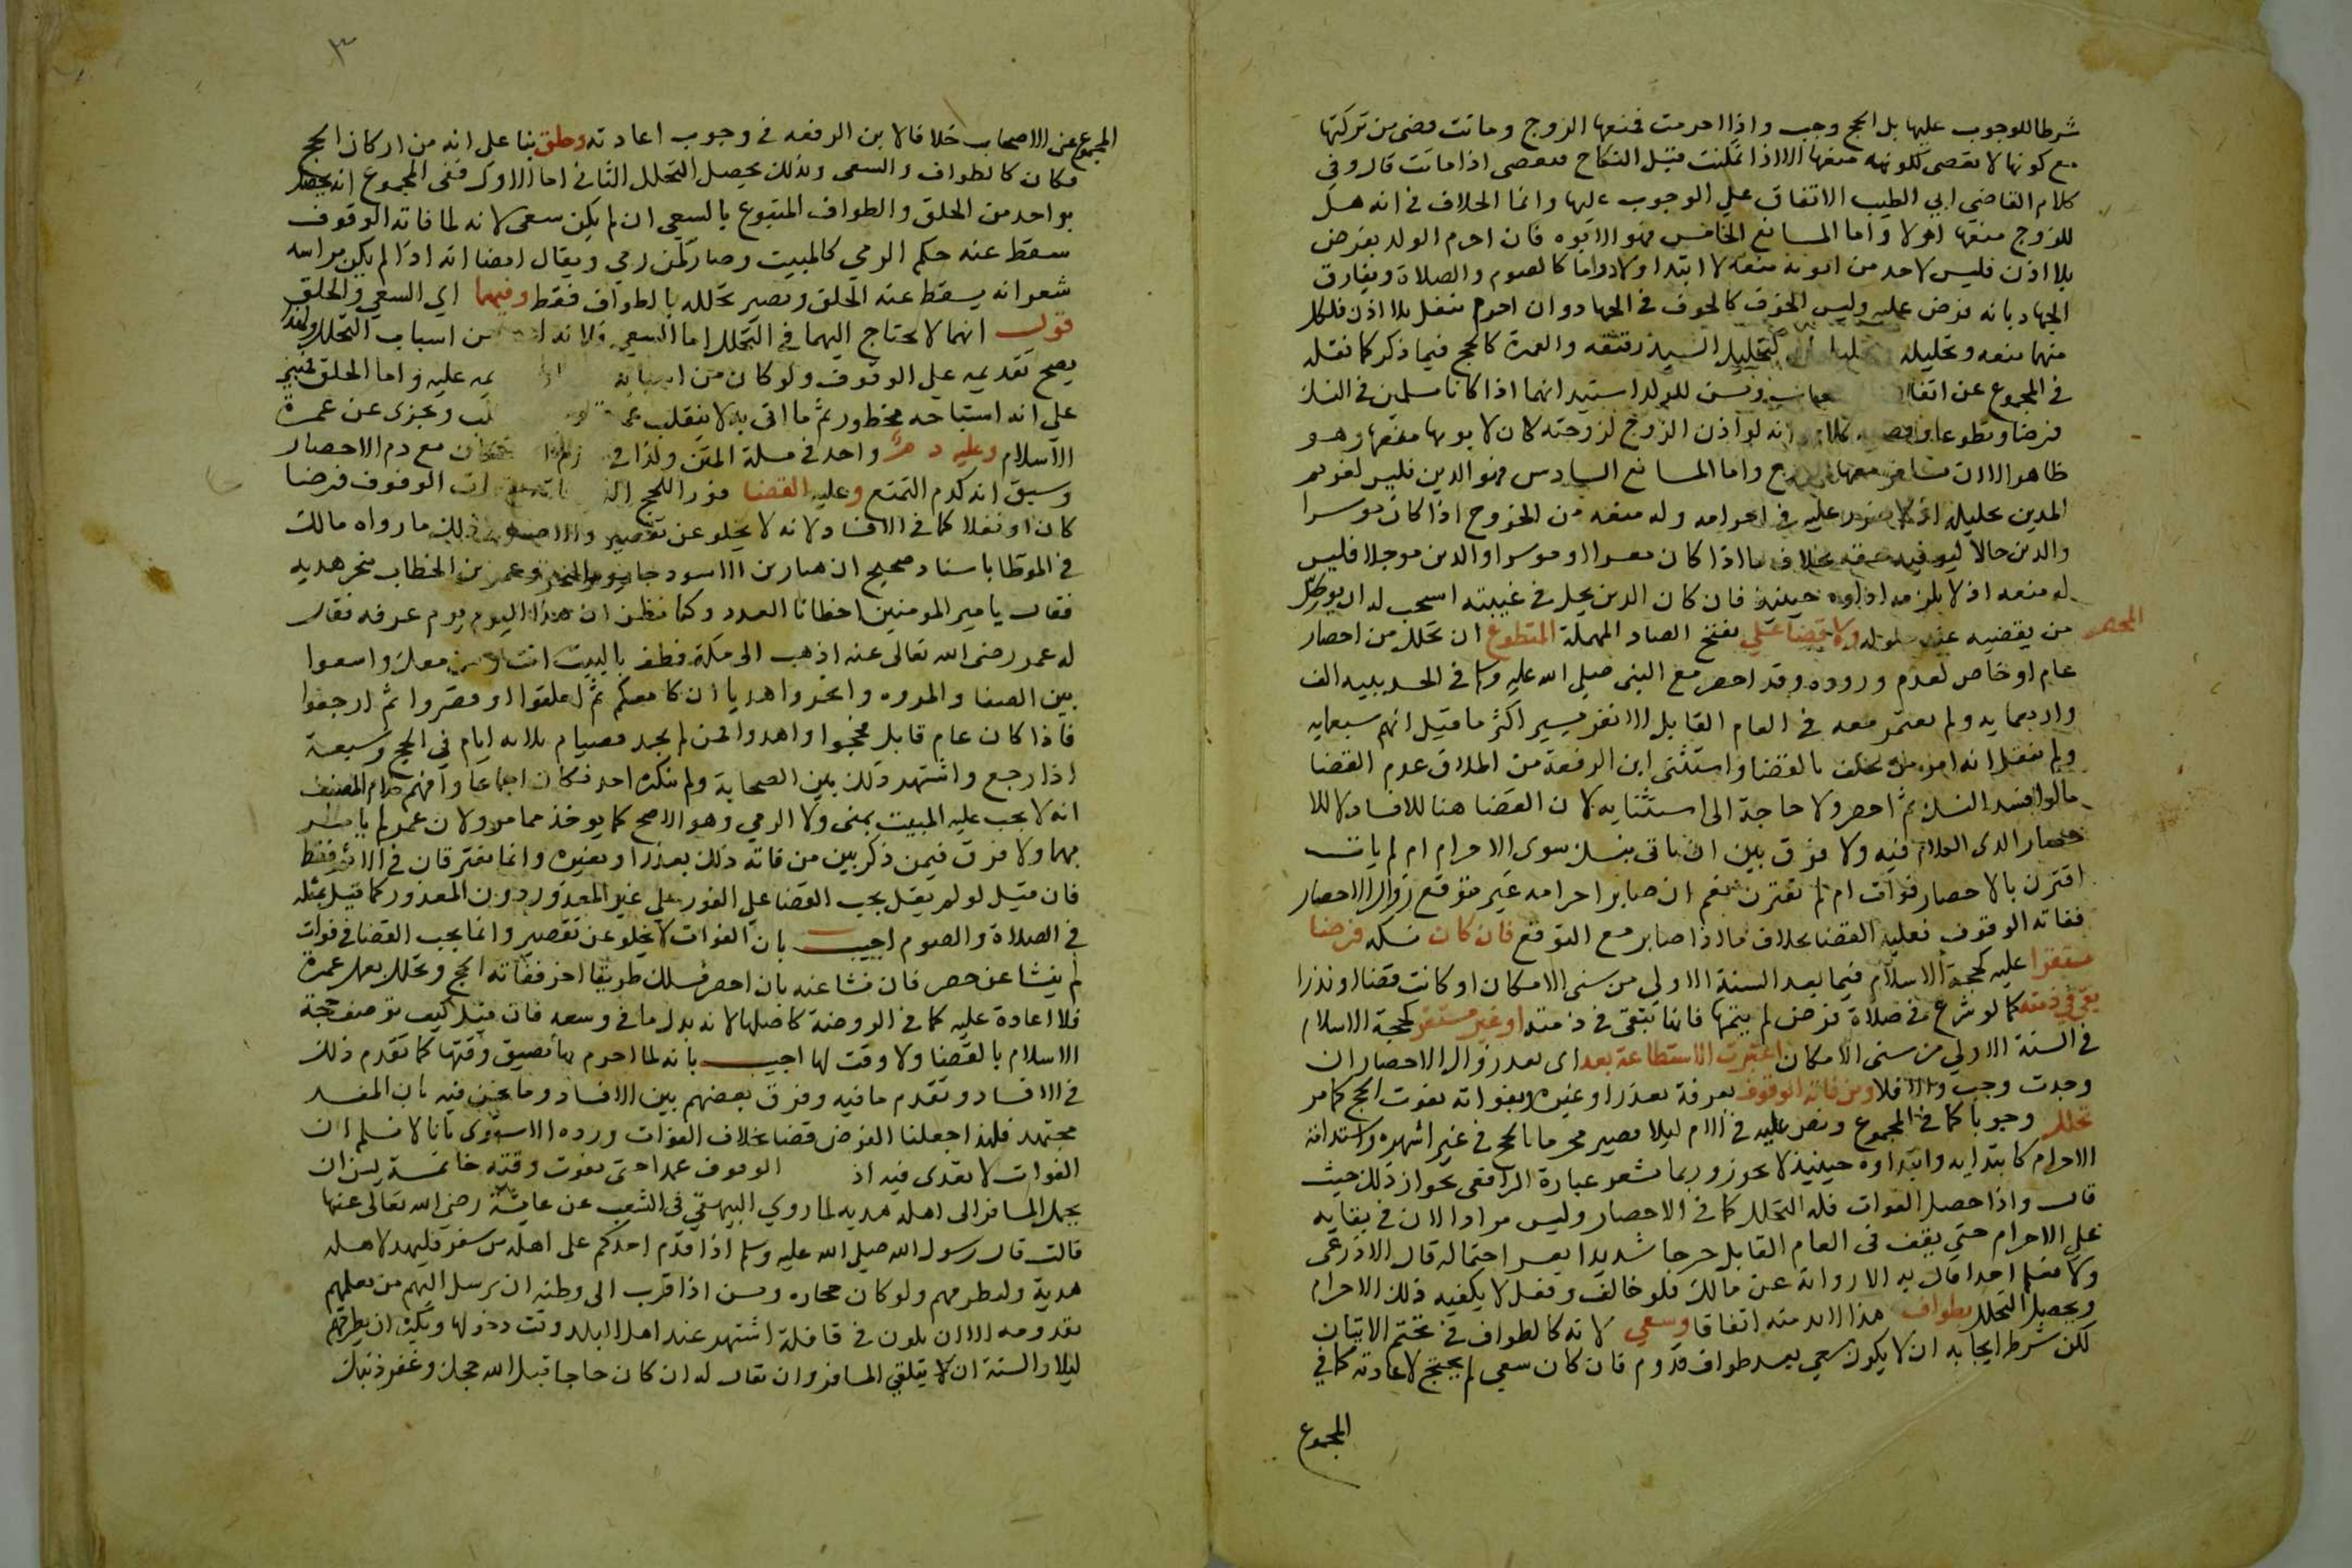 شرطا للوجوب عليها بل الحج وجب واذا احرمت فمنعها الزوج وماتت قضى من تركتها
مع كونها لا تعصى لكونه منعها الا اذا تمكنت قبل النكاح فتعصى اذا ماتت قال وفى
كلام القاضى ابي الطيب الاتفاق علي الوجوب عليها وانما الخلاف في انه هل
للزوج منعها اولا واما المانع الخامس فهو الابوه فان احرم الولد بفرض
بلا اذن فليس لاحد من ابويه منعه لا ابتدا ولا دواما كالصوم والصلاة ويفارق
الجهاد بانه فرض عليه وليس الخوف كالخوف في الجهاد وان احرم بنفل بلا اذن فلكل
منهما منعه وتحليله كتحليل السيد رقيقه والعمرة كالحج فيما ذكر كما نقله
في المجموع عن اتفاق ويسن للولد استيذانهما اذا كانا مسلمين في النسك
فرضا وتطوعا انه لو اذن الزوج لزوجته كان لابويها منعها وهو
ظاهر الا ان يسافر معها الزوج واما المانع السادس فهو الدين فليس لغريم
المدين تحليله اذ لا ضرر عليه في احرامه وله منعه من الخروج اذا كان موسرا
والدين حالا ليوفيه حقه بخلاف ما اذا كان معسرا او موسرا والدين موجلا فليس
له منعه اذ لا يلزمه اداوه حينيذ فان كان الدين يحل في غيبته استحب له ان يوكل
من يقضيه عند حلوله ولا قضا علي بفتح الصاد المهملة المتطوع ان تحلل من احصار
المحصر
عام او خاص لعدم وروده وقد احصر مع النبى صلى الله عليه وسلم في الحديبيه الف
واربعمايه ولم يعتمر معه في العام القابل الا نفر يسير اكثر ما قيل انهم سبعمايه
ولم ينقل انه امر من تخلف بالقضا واستثنى ابن الرفعة من اطلاق عدم القضا
ما لو افسد النسك ثم احصر ولا حاجة الى استثنايه لان القضا هنا للافساد لا للا
حصار الذى الكلام فيه ولا فرق بين ان ياتى بنسك سوى الاحرام ام لم يات
اقترن بالاحصار فوات ام لم يقترن نعم ان صابر احرامه غير متوقع زوال الاحصار
ففاته الوقوف فعليه القضا بخلاف ما اذا صابر مع التوقع فان كان نسكه فرضا
مستقرا عليه كحجة الاسلام فيما بعد السنة الاولي من سنى الامكان او كانت قضا او نذرا
بقي في ذمته كما لو شرع في صلاة فرض لم يتمها فانها تبقى في ذمته او غير مستقر كحجة الاسلام
في السنة الاولي من سنى الامكان اعتبرت الاستطاعة بعد اى بعد زوال الاحصار ان
وجدت وجب والا فلا ومن فاته الوقوف بعرفة بعذر او غيره وبفواته يفوت الحج كما مر
تحلل وجوبا كما في المجموع ونص عليه في الام ليلا يصير محرما بالحج في غير اشهره واستدامة
الاحرام كابتدايه وابتداوه حينيذ لا يجوز وربما تشعر عبارة الرافعى بجواز ذلك حيث
قال واذا حصل الفوات فله التحلل كما في الاحصار وليس مرادا لان في بقايه
على الاحرام حتى يقف في العام القابل حرجا شديدا يعسر احتماله قال الاذرعى
ولا نعلم احدا قال به الا رواية عن مالك فلو خالف وفعل لا يكفيه ذلك الاحرام
ويحصل التحلل بطواف هذا لابد منه اتفاقا وسعي لانه كالطواف في تحتم الاتيان
لكن شرط ايجابه ان لا يكون سعى بعد طواف قدوم فان كان سعي لم يحتج لاعادته كما في
المجموع
٣
المجموع عن الاصحاب خلافا لابن الرفعه في وجوب اعادته وحلق بنا على انه من اركان الحج
فكان كالطواف والسعى وبذلك يحصل التحلل الثانى اما الاول ففي المجموع انه يحصل
بواحد من الحلق والطواف المتبوع بالسعي ان لم يكن سعى لانه لما فاته الوقوف
سقط عنه حكم الرمي كالمبيت وصار كمن رمي ويقال ايضا انه اذا لم يكن براسه
شعر انه يسقط عنه الحلق ويصير تحلله بالطواف فقط وفيهما اي السعي والحلق
قول انهما لا يحتاج اليهما في التحلل اما السعى فلانه من اسباب التحلل ولهذا
يصح تقديمه على الوقوف ولو كان من اسبابه عليه واما الحلق فمبنى
على انه استباحه محظور ثم ما اتى به لا ينقلب وتجزى عن عمرة
الاسلام وعليه دم واحد في مسلة المتن مع دم الاحصار
وسبق انه كدم التمتع وعليه القضا فورا للحج الوقوف فرضا
كان او نفلا كما في الافساد ولانه لا يخلو عن تقصير والاصل فى ذلك ما رواه مالك
في الموطا باسناد صحيح ان هبار بن الاسود جا يوم النحر وعمر بن الخطاب ينحر هديه
فقال يا امير المومنين اخطانا العدد وكنا نظن ان هذا اليوم يوم عرفه فقال
له عمر رضى الله تعالى عنه اذهب الى مكة فطف بالبيت انت ومن معك واسعوا
بين الصفا والمروه وانحروا هديا ان كان معكم ثم احلقوا او قصروا ثم ارجعوا
فاذا كان عام قابل فحجوا واهدوا فمن لم يجد فصيام ثلاثه ايام في الحج وسبعة
اذا رجع واشتهر ذلك بين الصحابة ولم ينكره احد فكان اجماعا وافهم كلام المصنف
انه لا يجب عليه المبيت بمنى ولا الرمي وهو الاصح كما يوخذ مما مر ولان عمر لم يامر
بهما ولا فرق فيمن ذكر بين من فاته ذلك بعذر او بغيره وانما يفترقان في الاثم فقط
فان قيل لو لم يقل يجب القضا على الفور على غير المعذور دون المعذور كما قيل بمثله
في الصلاة والصوم اجيب بان الفوات لا يخلو عن تقصير وانما يجب القضا في فوات
لم ينشا عن حصر فان نشا عنه بان احصر فسلك طريقا اخر ففاته الحج وتحلل بعمل عمرة
فلا اعادة عليه كما في الروضة كاصلها لانه بذل ما في وسعه فان قيل كيف توصف حجة
الاسلام بالقضا ولا وقت لها اجيب بانه لما احرم بها تضيق وقتها كما تقدم ذلك
في الافساد وتقدم ما فيه وفرق بعضهم بين الافساد وما نحن فيه بان المفسد
مجتهد فلهذا جعلنا الفرض قضا بخلاف الفوات ورده الاسنوى بانا لا نسلم ان
الفوات لا تعدى فيه اذ الوقوف عمدا حتى يفوت وقته خاتمة يسن ان
يحمل المسافر الى اهله هديه لما روي البيهقي في الشعب عن عايشة رضى الله تعالى عنها
قالت قال رسول الله صلى الله عليه وسلم اذا قدم احدكم على اهله من سفر فليهد لاهله
هدية وليطرفهم ولو كان حجاره ويسن اذا قرب الى وطنه ان يرسل اليهم من يعلمهم
بقدومه الا ان يكون في قافلة اشتهر عند اهل البلد وقت دخولها ويكره ان يطرقهم
ليلا والسنة ان يتلقى المسافر وان يقال له ان كان حاجا قبل الله حجك وغفر ذنبك